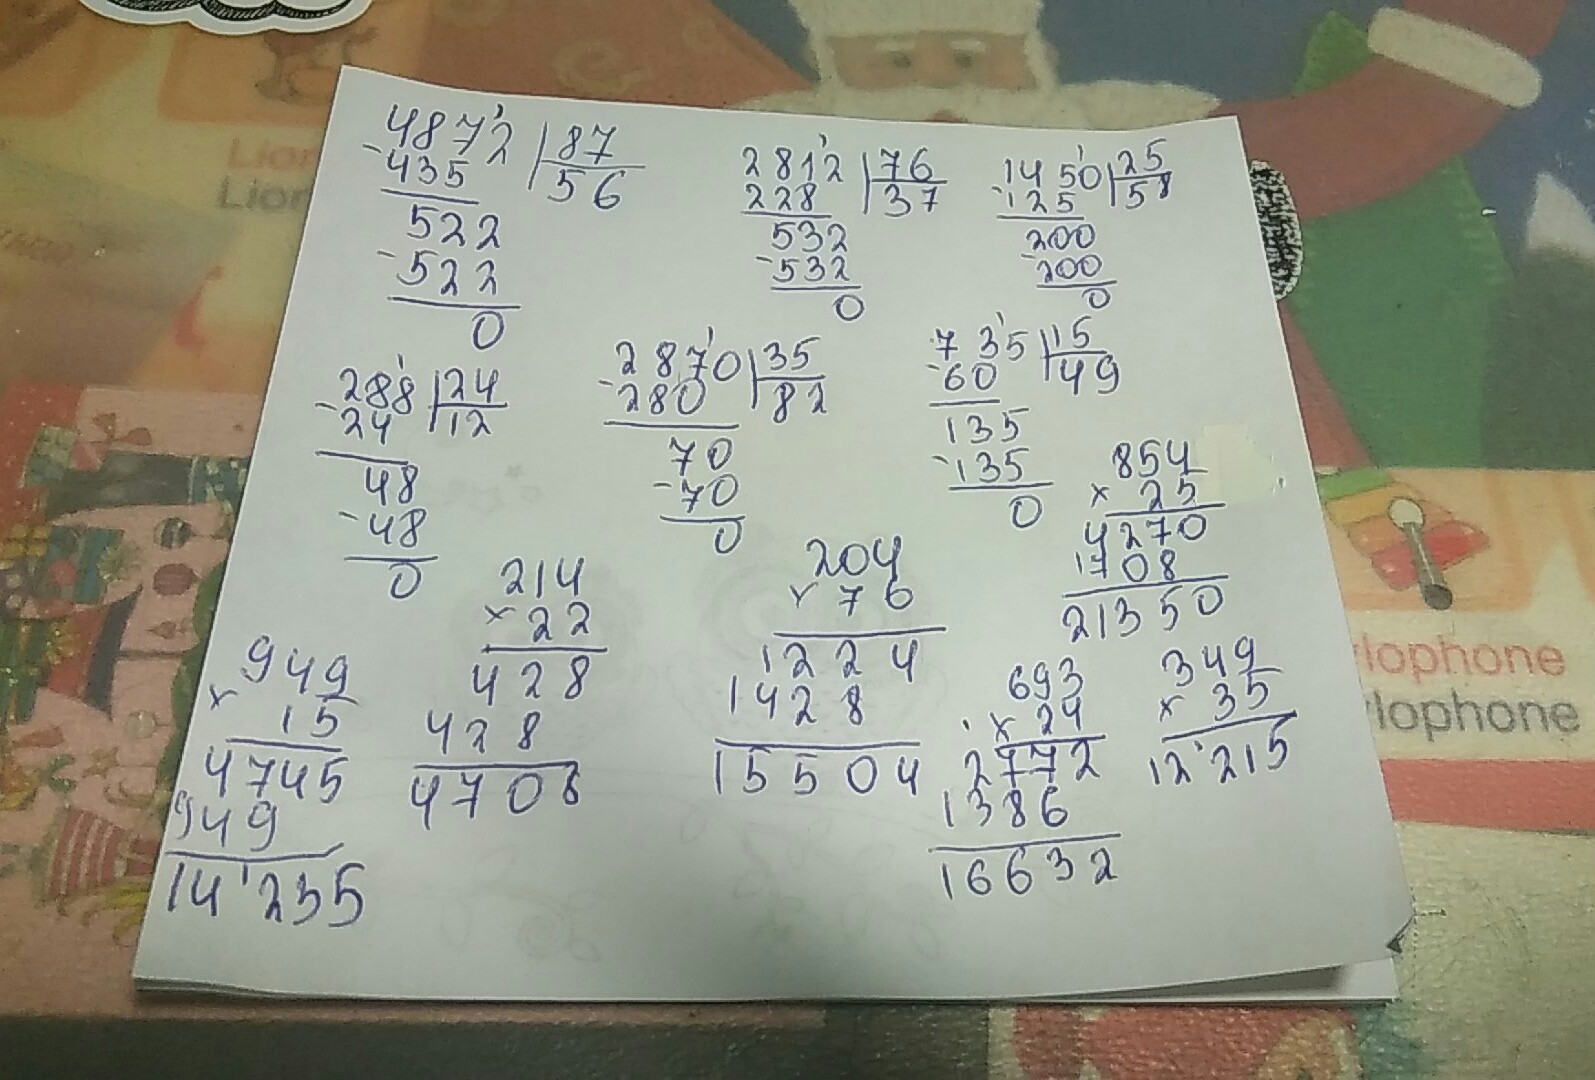 4872 | 87
-435 56
522
-522
0
2812 | 76
228 37
532
-532
0
1450 | 25
-125 58
200
-200
0
288 | 24
-24 12
48
-48
0
2870 | 35
-280 82
70
-70
0
735 | 15
-60 49
135
-135
0
854
× 25
4270
1708
21350
949
× 15
4745
949
14'235
214
× 22
428
428
4708
204
× 76
1224
1428
15504
693
× 24
2772
1386
16632
349
× 35
12'215
Lion
Lion
lophone
lophone